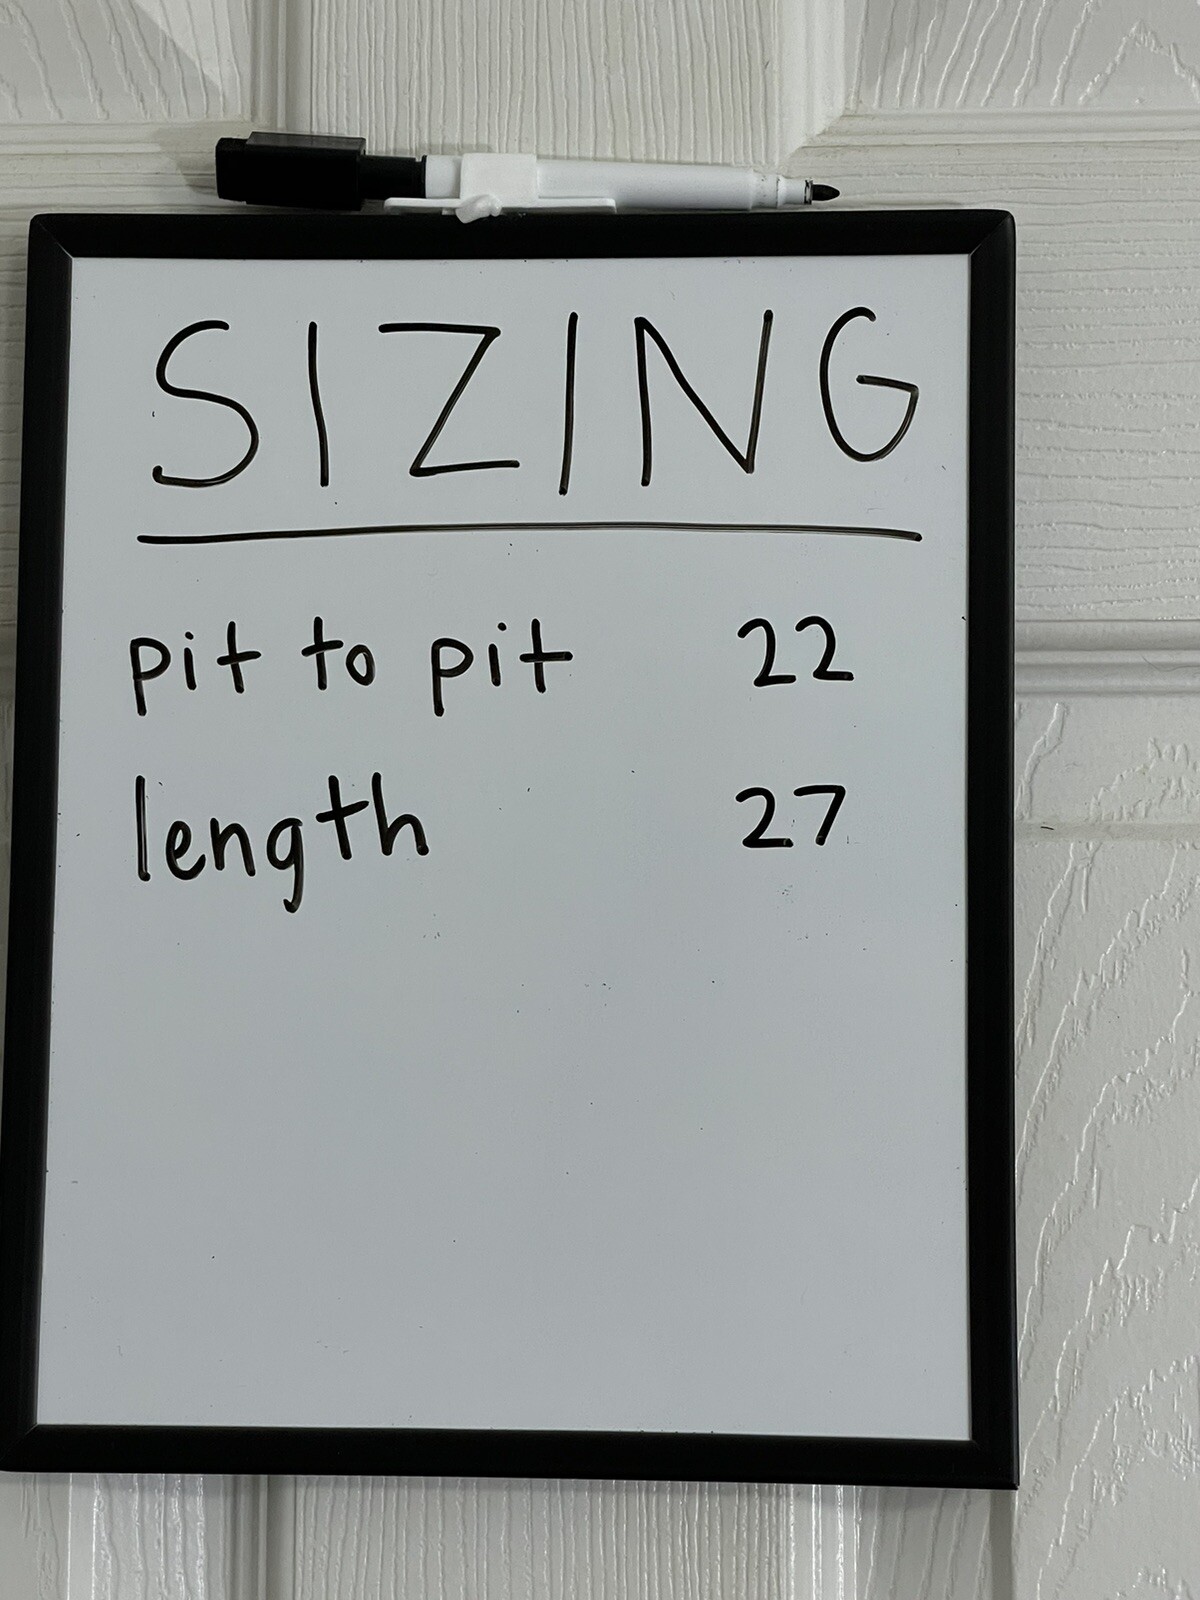 SIZING
pit to pit 22
length 27